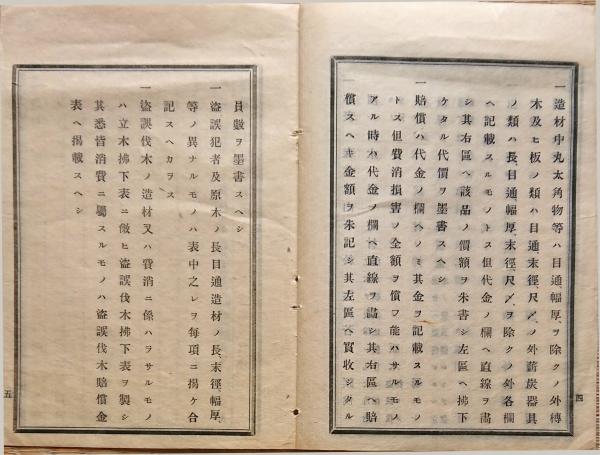 一造材中丸太角物等ハ目通、幅厚、ヲ除クノ外樽
木及ヒ板ノ類ハ目通末徑、尺〆ノ外薪炭器具
ノ類ハ長目通幅厚、末徑、尺〆ヲ除クノ外各欄
ヘ記載スルモノトス但代金ノ欄ヘ直線ヲ畵
シ其右區ヘ該品ノ價額ヲ朱書シ左區ヘ拂下
ケタル代價ヲ墨書スヘシ
一賠償ハ代金ノ欄ヘノミ其金ヲ記載スルモノ
トス但費消損害ノ全額ヲ償フ能ハサルモノ
アル時ハ代金ノ欄ヘ直線ヲ畵シ其右區ヘ賠
償スヘキ金額ヲ朱記シ其左區ヘ實收シタル
四
員數ヲ墨書スヘシ
一盜誤犯者及原木ノ長目通造材ノ長、末徑、幅厚、
等ノ異ナルモノハ表中之レヲ每項ニ揭ケ合
記スヘカラス
一盜誤伐木ノ造材又ハ費消ニ係ハラサルモノ
ハ立木拂下表ニ倣ヒ盜誤伐木拂下表ヲ製シ
其悉皆消費ニ屬スルモノハ盜誤伐木賠償金
表ヘ揭載スヘシ
五